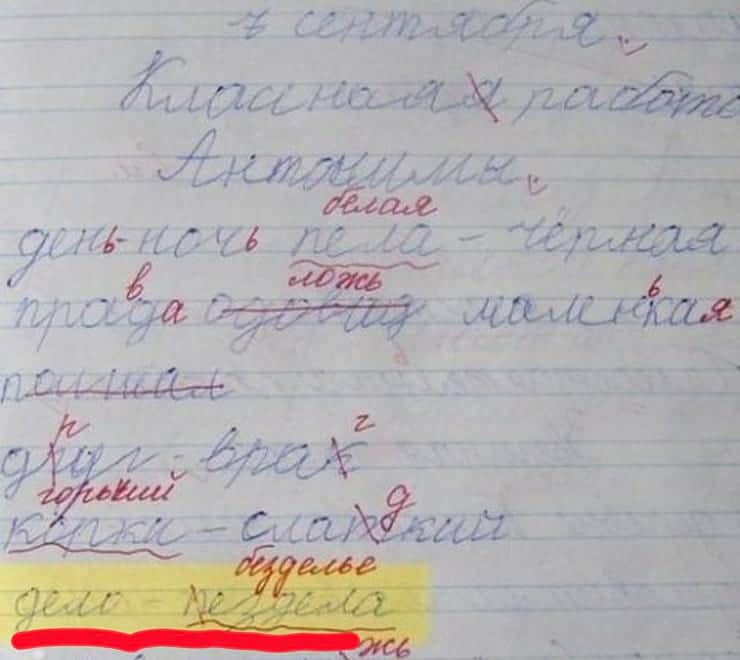 7 сентября.
Класнаяя работа
Антонимы.
белая
день-ночь пела - чёрная
в ложь ь
прада маленкая
р г
друг - врак
горький д
кёрки - слаткий
безделье
дело - пездела
жь